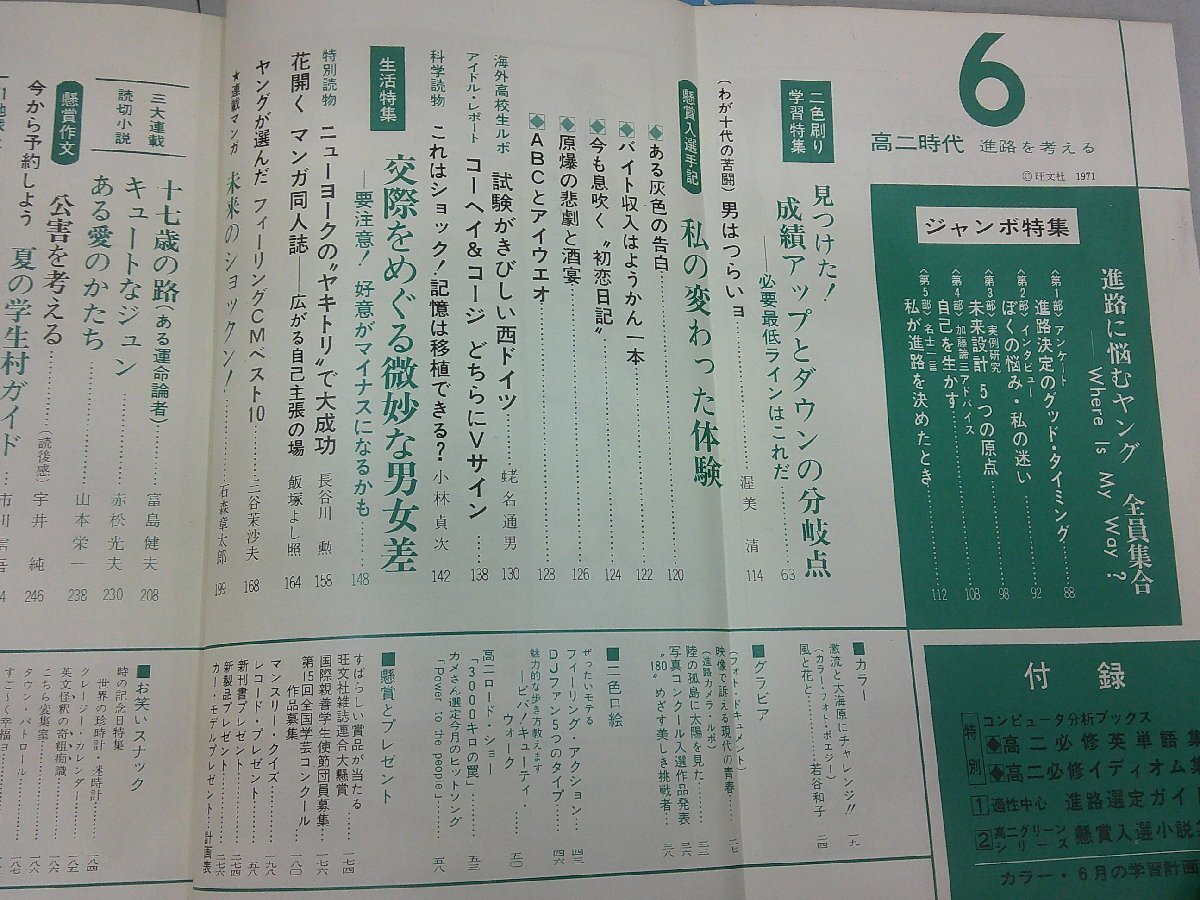 6
高二時代 進路を考える
©旺文社 1971
ジャンボ特集
進路に悩むヤング 全員集合
——Where Is My Way?
〈第1部〉アンケート
進路決定のグッド・タイミング……88
〈第2部〉インタビュー
ぼくの悩み・私の迷い……92
〈第3部〉実例研究
未来設計 5つの原点……98
〈第4部〉加藤諦三アドバイス
自己を生かす……108
〈第5部〉名士一言
私が進路を決めたとき……112
二色刷り
学習特集
見つけた!
成績アップとダウンの分岐点
——必要最低ラインはこれだ……63
(わが十代の苦闘) 男はつらいョ……渥美 清 114
懸賞入選手記
私の変わった体験
◆ある灰色の告白……120
◆バイト収入はようかん一本……122
◆今も息吹く〝初恋日記〟……124
◆原爆の悲劇と酒宴……126
◆ABCとアイウエオ……128
海外高校生ルポ 試験がきびしい西ドイツ……蛯名通男 130
アイドル・レポート コーヘイ&コージ どちらにVサイン……138
科学読物 これはショック!記憶は移植できる? 小林貞次 142
生活特集
交際をめぐる微妙な男女差
——要注意! 好意がマイナスになるかも……148
特別読物 ニューヨークの〝ヤキトリ〟で大成功 長谷川 勲 158
花開く マンガ同人誌——広がる自己主張の場 飯塚よし照 164
ヤングが選んだ フィーリングCMベスト10……三谷茉沙夫 168
★連載マンガ 未来のショックン!……石森章太郎 199
三大連載
読切小説
十七歳の路(ある運命論者)……富島健夫 208
キュートなジュン……赤松光夫 230
ある愛のかたち……山本栄一 238
懸賞作文
公害を考える……(読後感)宇井 純 246
今から予約しよう 夏の学生村ガイド……市川信吾
付録
特別
コンピュータ分析ブックス
◆高二必修英単語集
◆高二必修イディオム集
1 適性中心 進路選定ガイド
2 高二グリーンシリーズ 懸賞入選小説
カラー・6月の学習計画
■カラー
激流と大海原にチャレンジ!!……一九
(カラー・フォト・ポエジー)
風と花と……若谷和子 二四
■グラビア
(フォト・ドキュメント)
映像で訴える現代の青春……一七
(進路カメラ・ルポ)
陸の孤島に太陽を見た……三二
写真コンクール入選作品発表 三六
〝180〟めざす美しき挑戦者……三八
■二色口絵
ぜったいモテる
フィーリング・アクション……四三
DJファン5つのタイプ……四六
魅力的な歩き方教えます
——ビバ!キューティ・
ウォーク……五〇
高二ロード・ショー
「3000キロの罠」……五三
カメさん選定今月のヒットソング
「Power to the people」……五八
■懸賞とプレゼント
すばらしい賞品が当たる
旺文社雑誌連合大懸賞……一七四
国際親善学生使節団員募集……一七六
第15回全国学芸コンクール
作品募集……一八〇
マンスリー・クイズ……一九八
レコード・プレゼント……五八
新刊書プレゼント……二四四
新製品プレゼント……二七六
カー・モデルプレゼント……計画表
■お笑いスナック
時の記念日特集
世界の珍時計・迷時計……一八四
クレージー・カレンダー
英文怪釈の奇粗痴識
こちら変集室
タウン・パトロール
すご〜く幸福ョ